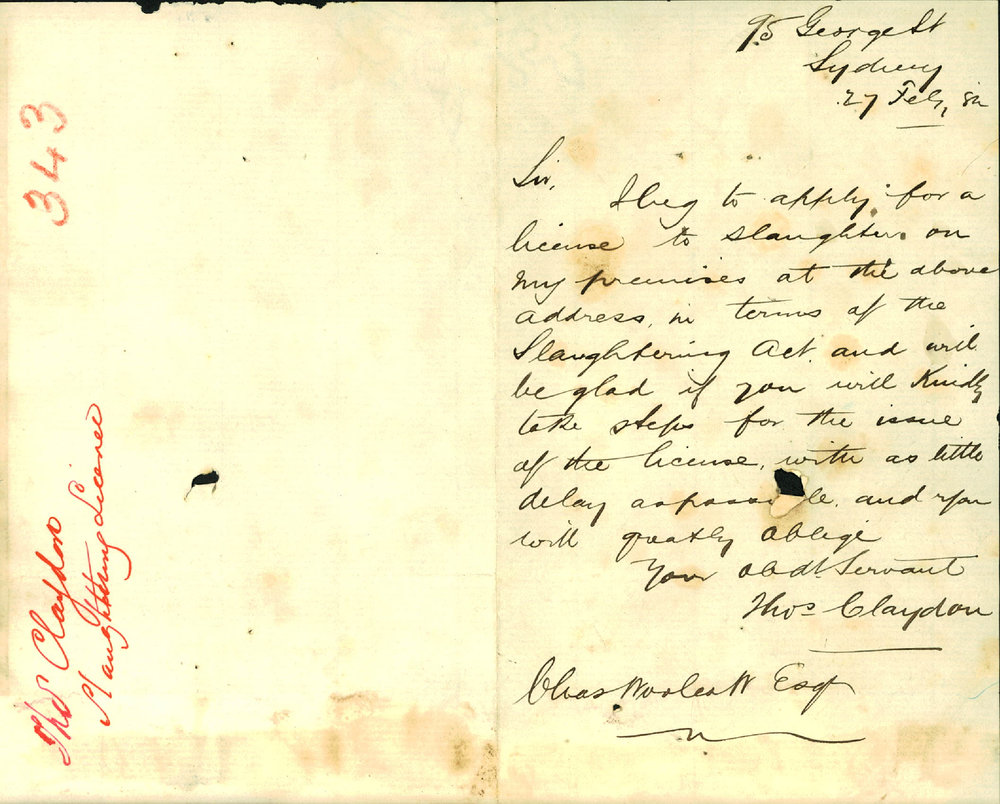 343
Thos Claydon
Slaughtering Licence
95 George St
Sydney
27 Feb, 82
Sir,
I beg to apply for a
license to slaughter on
my premises at the above
address, in terms of the
Slaughtering Act, and will
be glad if you will Kindly
take steps for the issue
of the license, with as little
delay as possi le, and you
will greatly oblige
Your obdt Servant
Thos Claydon
Chas Woolcott Esq